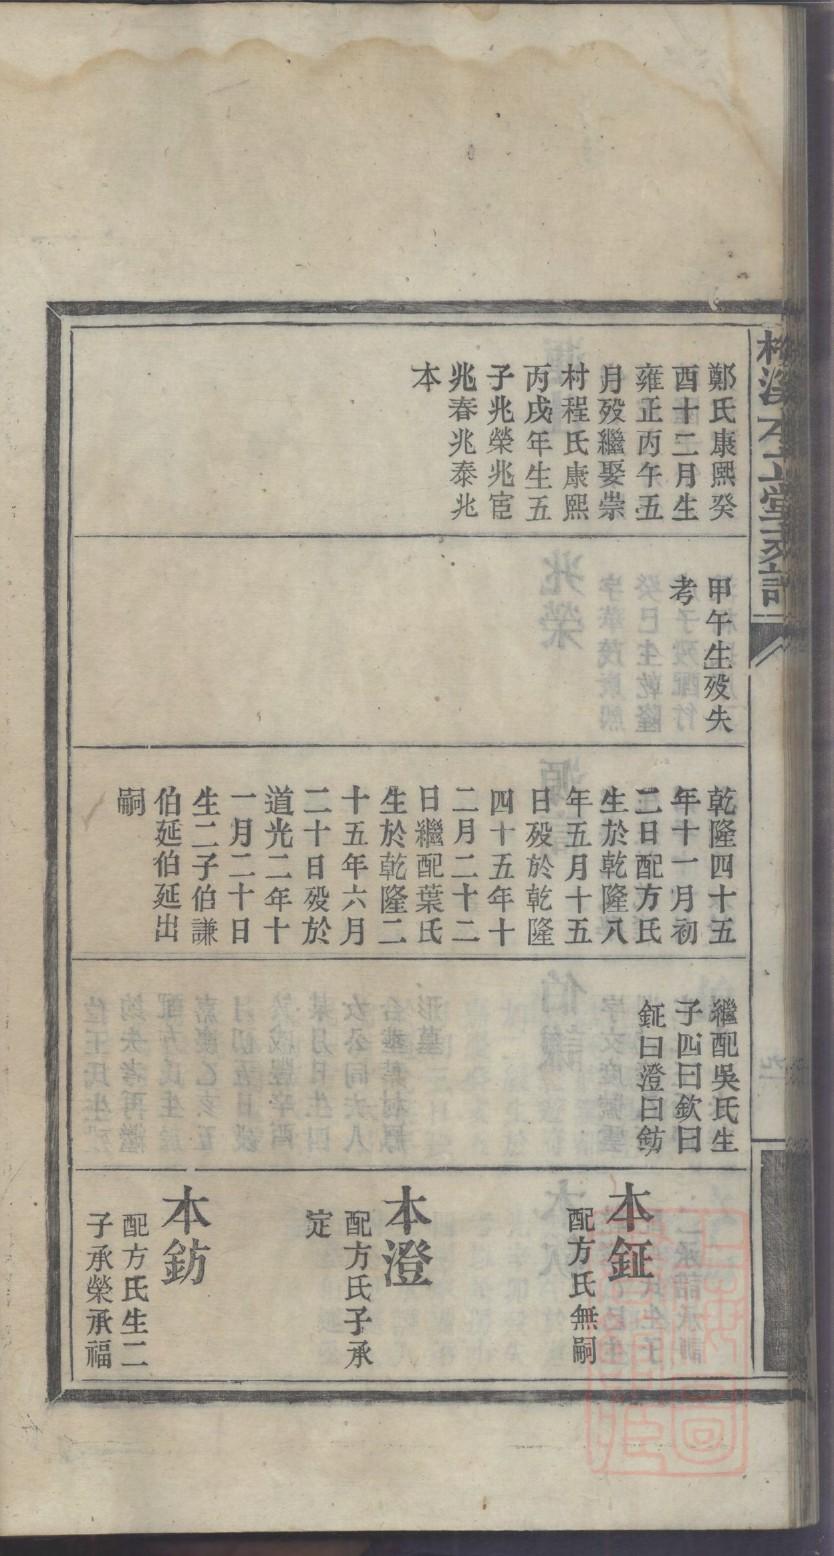 鄭氏康熙癸
酉十二月生
雍正丙午五
月歿繼娶崇
村程氏康熙
丙戌年生五
子兆榮兆宦
兆春兆泰兆
本
甲午生歿失
考
乾隆四十五
年十一月初
二日配方氏
生於乾隆八
年五月十五
日歿於乾隆
四十五年十
二月二十二
日繼配葉氏
生於乾隆二
十五年六月
二十日歿於
道光二年十
一月二十日
生二子伯謙
伯延伯延出
嗣
繼配吳氏生
子四曰欽曰
鉦曰澄曰鈁
本鉦
配方氏無嗣
本澄
配方氏子承
定
本鈁
配方氏生二
子承榮承福